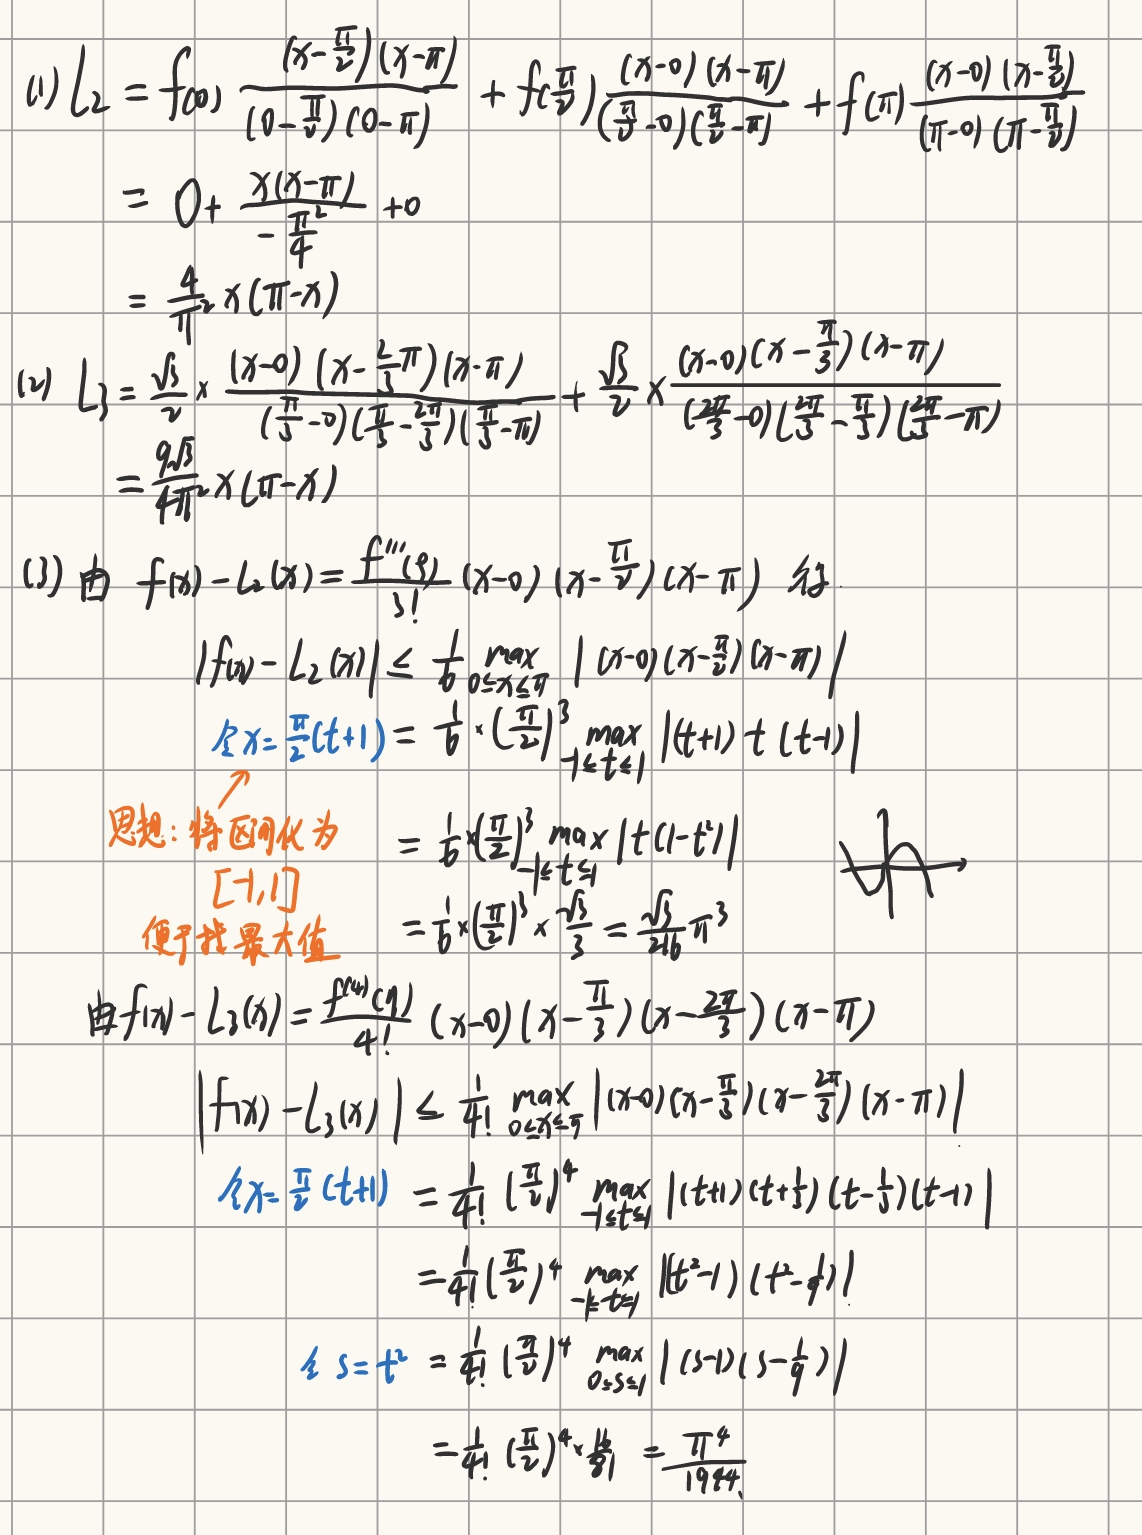 (1) L₂ = f(0) \frac{(x-\frac{π}{2})(x-π)}{(0-\frac{π}{2})(0-π)} + f(\frac{π}{2}) \frac{(x-0)(x-π)}{(\frac{π}{2}-0)(\frac{π}{2}-π)} + f(π) \frac{(x-0)(x-\frac{π}{2})}{(π-0)(π-\frac{π}{2})}
= 0 + \frac{x(x-π)}{-\frac{π²}{4}} + 0
= \frac{4}{π²} x(π-x)
(2) L₃ = \frac{√3}{2} × \frac{(x-0)(x-\frac{2}{3}π)(x-π)}{(\frac{π}{3}-0)(\frac{π}{3}-\frac{2π}{3})(\frac{π}{3}-π)} + \frac{√3}{2} × \frac{(x-0)(x-\frac{π}{3})(x-π)}{(\frac{2π}{3}-0)(\frac{2π}{3}-\frac{π}{3})(\frac{2π}{3}-π)}
= \frac{9√3}{4π²} x(π-x)
(3) 由 f(x)-L₂(x) = \frac{f'''(ξ)}{3!} (x-0)(x-\frac{π}{2})(x-π) 得
|f(x)-L₂(x)| ≤ \frac{1}{6} max_{0≤x≤π} |(x-0)(x-\frac{π}{2})(x-π)|
令x=\frac{π}{2}(t+1) = \frac{1}{6}×(\frac{π}{2})³ max_{-1≤t≤1} |(t+1) t (t-1)|
思想: 将区间化为
[-1,1]
便于找最大值
= \frac{1}{6}×(\frac{π}{2})³ max_{-1≤t≤1} |t(1-t²)|
= \frac{1}{6}×(\frac{π}{2})³ × \frac{√3}{3} = \frac{√3}{216} π³
由f(x)-L₃(x) = \frac{f⁽⁴⁾(η)}{4!} (x-0)(x-\frac{π}{3})(x-\frac{2π}{3})(x-π)
|f(x)-L₃(x)| ≤ \frac{1}{4!} max_{0≤x≤π} |(x-0)(x-\frac{π}{3})(x-\frac{2π}{3})(x-π)|
令x=\frac{π}{2}(t+1) = \frac{1}{4!} (\frac{π}{2})⁴ max_{-1≤t≤1} |(t+1)(t+\frac{1}{3})(t-\frac{1}{3})(t-1)|
= \frac{1}{4!} (\frac{π}{2})⁴ max_{-1≤t≤1} |(t²-1)(t²-\frac{1}{9})|
令 s=t² = \frac{1}{4!} (\frac{π}{2})⁴ max_{0≤s≤1} |(s-1)(s-\frac{1}{9})|
= \frac{1}{4!} (\frac{π}{2})⁴ × \frac{16}{81} = \frac{π⁴}{1944}